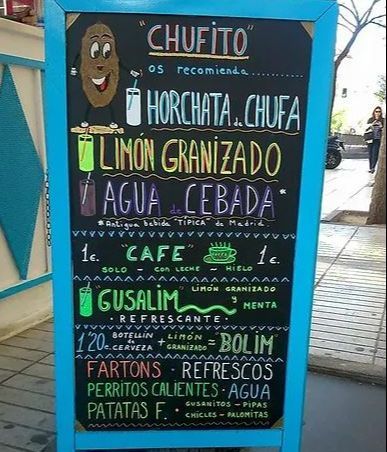 "CHUFITO"
os recomienda...........
HORCHATA de CHUFA
LIMÓN GRANIZADO
AGUA de CEBADA*
*Antigua bebida "TÍPICA" de Madrid.
1€. "CAFE" 1€.
SOLO - CON LECHE - HIELO
"GUSALIM" LIMÓN GRANIZADO y MENTA
· REFRESCANTE ·
1'20€ BOTELLIN de CERVEZA + LIMÓN GRANIZADO = "BOLIM"
FARTONS · REFRESCOS
PERRITOS CALIENTES · AGUA
PATATAS F. · GUSANITOS - PIPAS
CHICLES - PALOMITAS